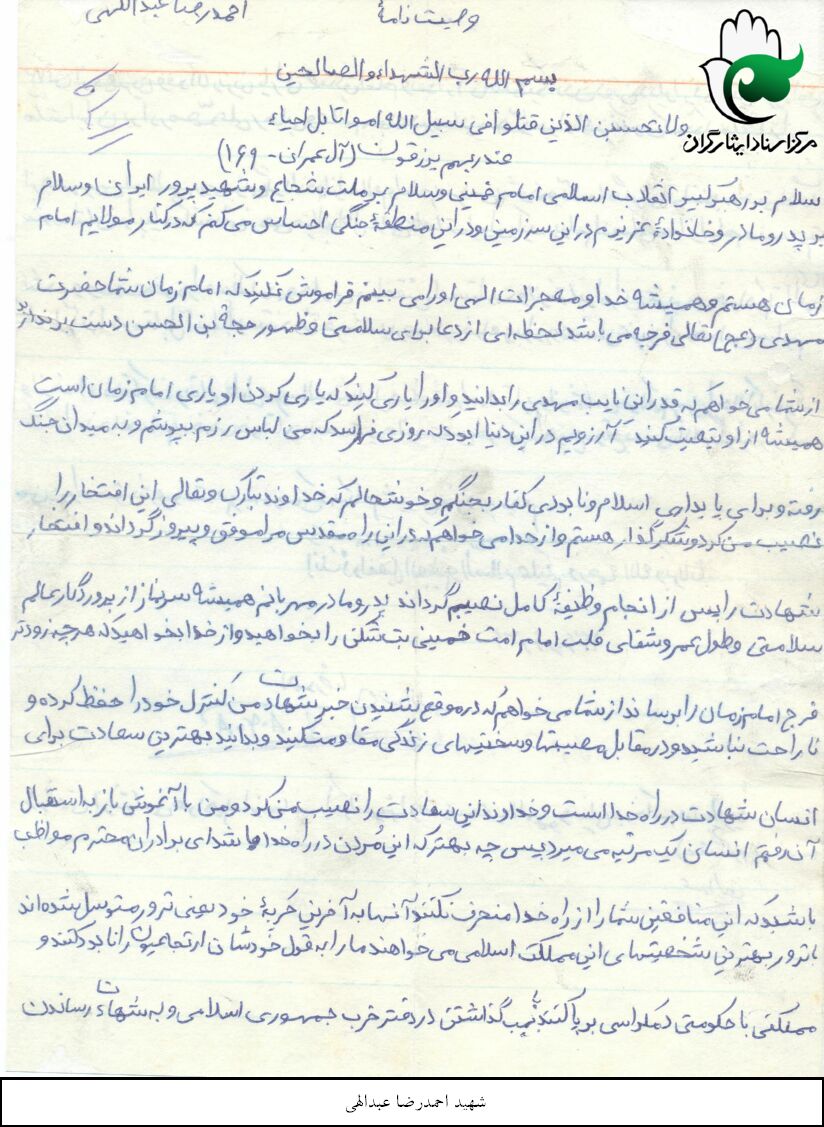 وصیت نامهٔ احمدرضا عبداللهی
بسم الله رب الشهداء و الصالحین
ولا تحسبن الذین قتلوا فی سبیل الله امواتا بل احیاء
عند ربهم یرزقون (آل عمران - ۱۶۹)
مرکز اسناد ایثارگران
سلام بر رهبر کبیر انقلاب اسلامی امام خمینی و سلام بر ملت شجاع و شهید پرور ایران و سلام
بر پدر و مادر و خانوادهٔ عزیزم در این سرزمین و در این منطقهٔ جنگی احساس می کنم که در کنار مولایم امام
زمان هستم و همیشه خدا و معجزات الهی او را می بینم فراموش نکنید که امام زمان شما حضرت
مهدی (عج) تعالی فرجه می باشد لحظه ای از دعا برای سلامتی و ظهور حجة بن الحسن دست برندارید
از شما می خواهم که قدر این نایب مهدی را بدانید و او را یاری کنید که یاری کردن او یاری امام زمان است
همیشه از او تبعیت کنید آرزویم در این دنیا این بود که روزی فرا رسد که من لباس رزم بپوشم و به میدان جنگ
رفته و برای پایداری اسلام و نابودی کفار بجنگم و خوشحالم که خداوند تبارک و تعالی این افتخار را
نصیب من کرد و شکرگذار هستم و از خدا می خواهم که در این راه مقدس مرا موفق و پیروز گرداند و افتخار
شهادت را پس از انجام وظیفهٔ کامل نصیبم گرداند پدر و مادر مهربانم همیشه سر نماز از پروردگار عالم
سلامتی و طول عمر و شفای قلب امام امت خمینی بت شکن را بخواهید و از خدا بخواهید که هر چه زودتر
فرج امام زمان را برساند از شما می خواهم که در موقع شنیدن خبر شهادت من کنترل خود را حفظ کرده و
ناراحت نباشید و در مقابل مصیبتها و سختیهای زندگی مقاومت کنید و بدانید بهترین سعادت برای
انسان شهادت در راه خدا است و خداوند این سعادت را نصیب من کرد و من با آغوش باز به استقبال
آن رفتم انسان یک مرتبه می میرد پس چه بهتر که این مُردن در راه خدا باشد ای برادران محترم مواظب
باشید که این منافقین شما را از راه خدا منحرف نکنند آنها به آخرین حربهٔ خود یعنی ترور متوسل شده اند
با ترور بهترین شخصیتهای این مملکت اسلامی می خواهند ما را به قول خودشان ارتجاعیون را نابود کنند و
مملکتی با حکومتی دمکراسی بر پا کنند با بمب گذاشتن در دفتر حزب جمهوری اسلامی و به شهادت رساندن
شهید احمدرضا عبدالهی